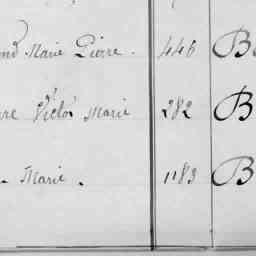 Marie Pierre. 446 B
Victor Marie 282 B
Marie. 1183 B